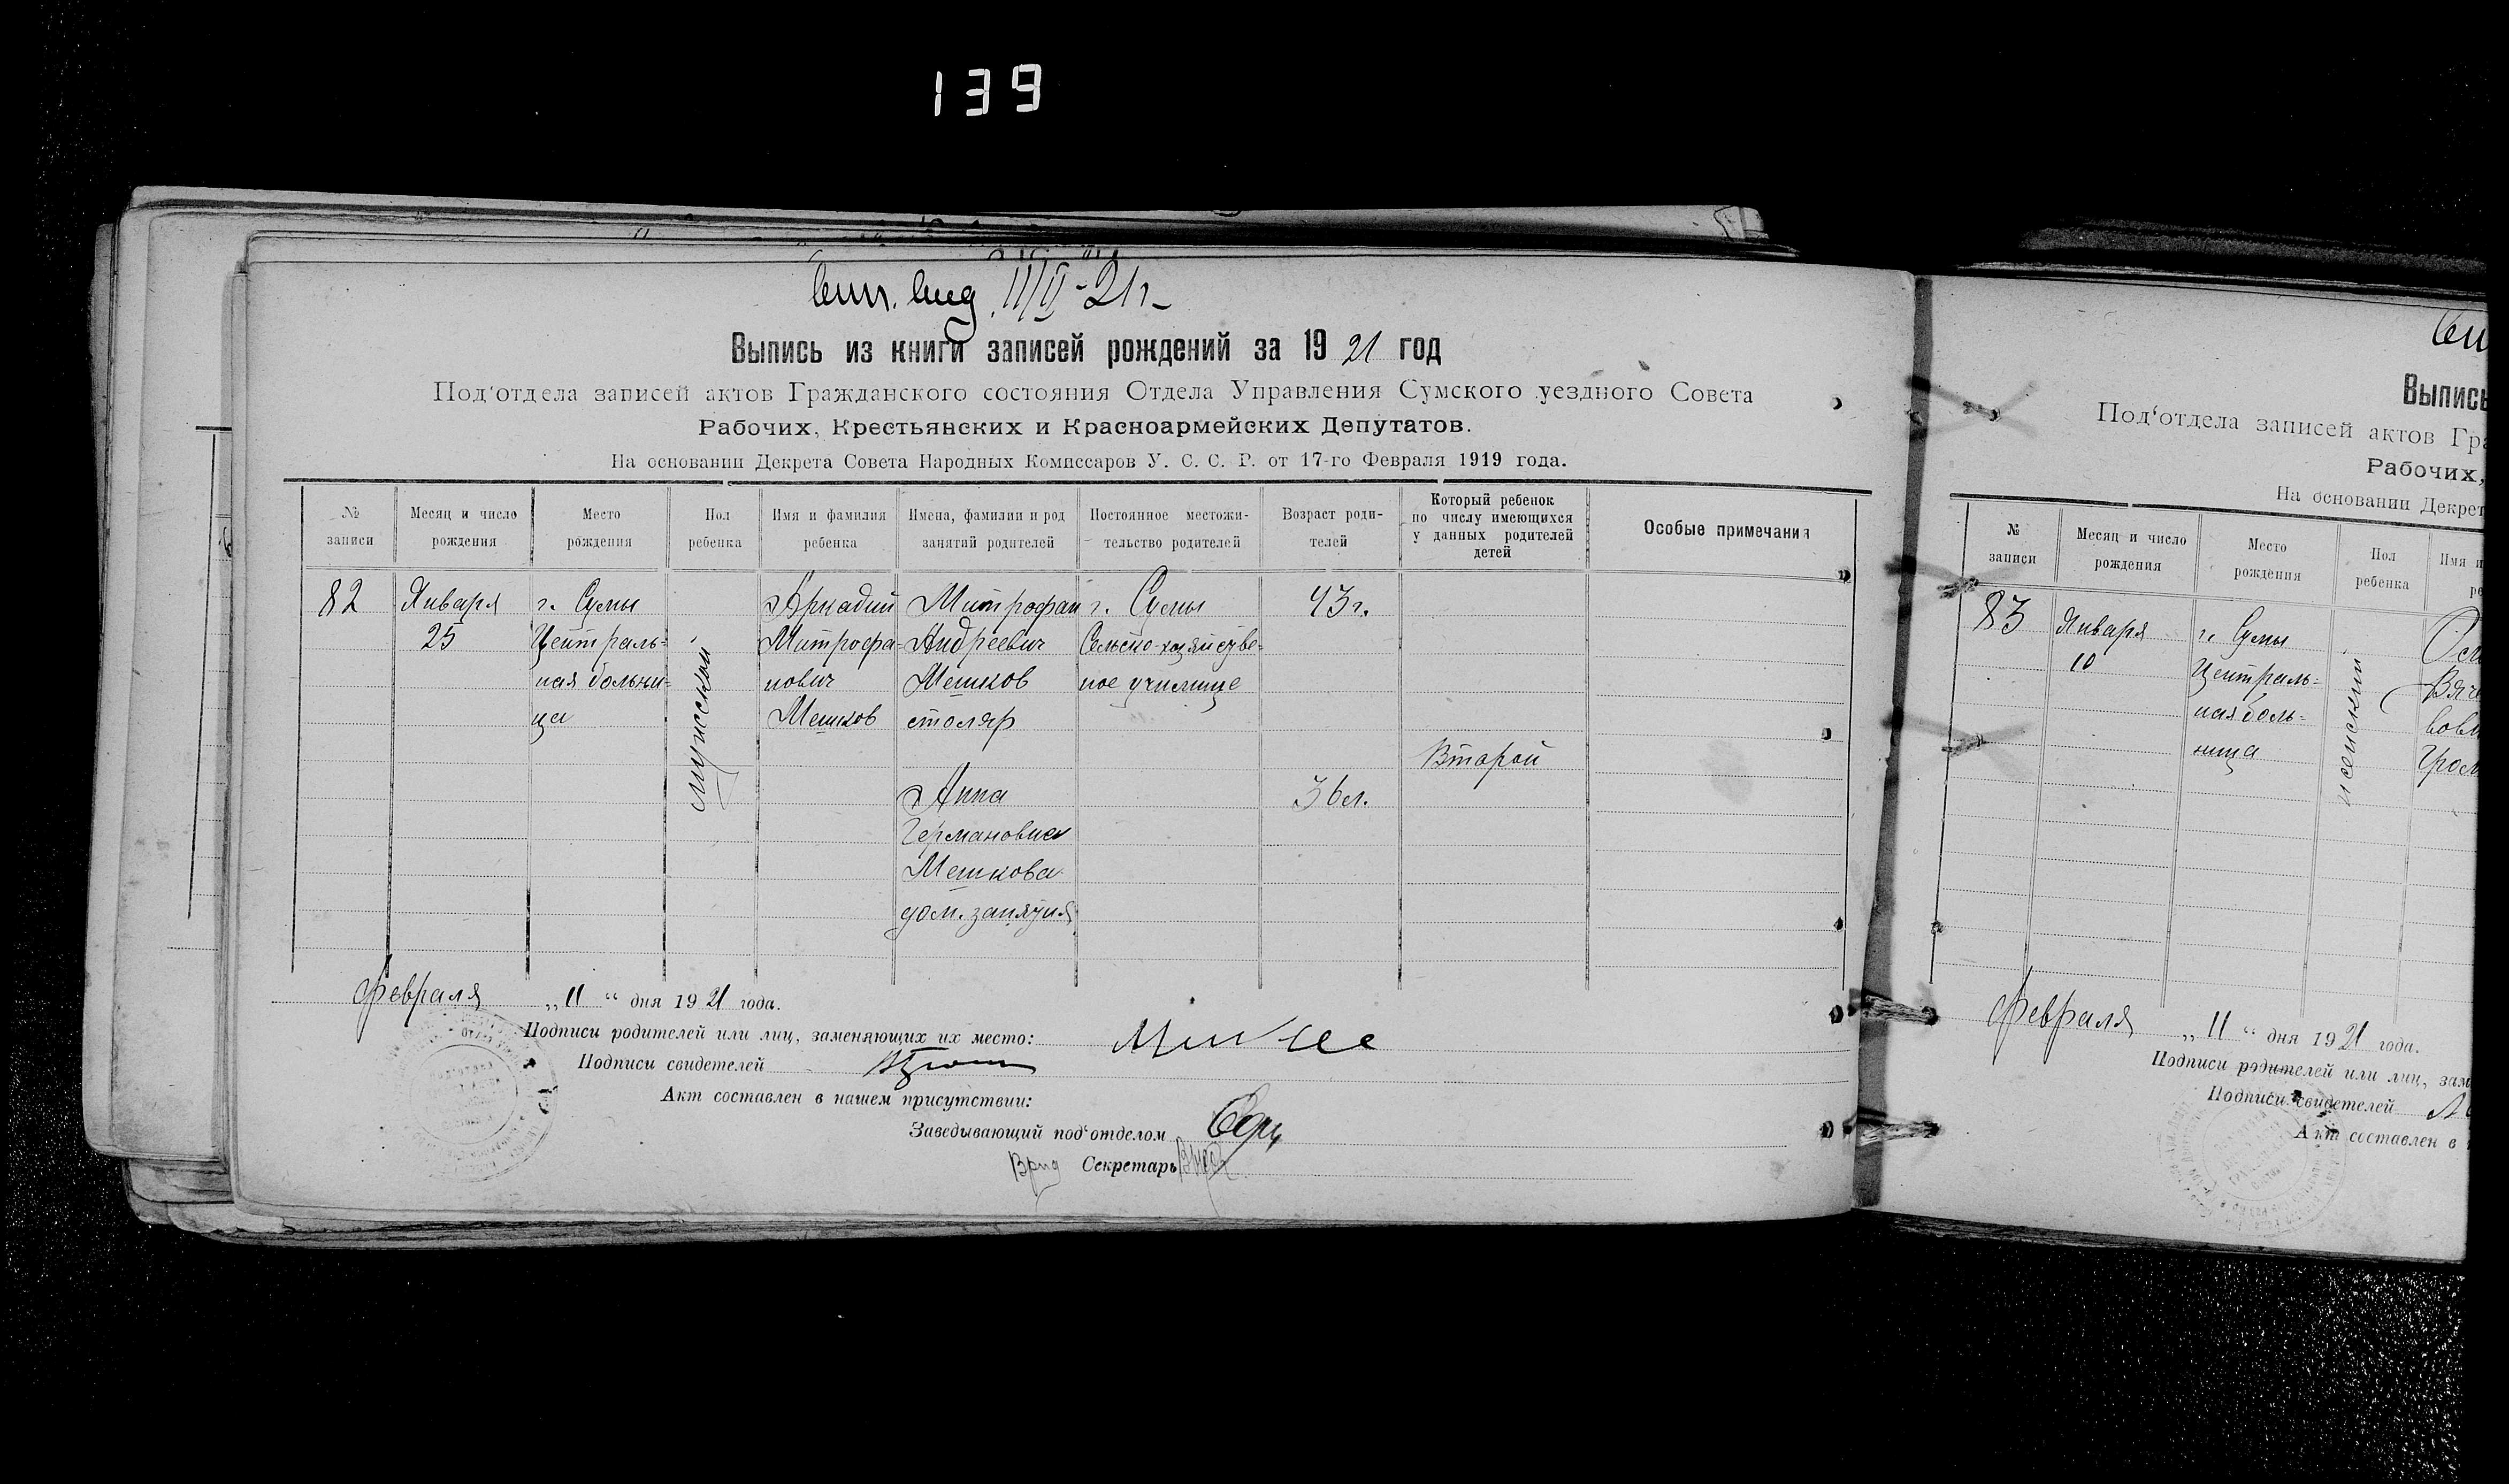 139
вып. выд. 11/II-21 г.
Выпись из книги записей рождений за 1921 год
Под‘отдела записей актов Гражданского состояния Отдела Управления Сумского уездного Совета
Рабочих, Крестьянских и Красноармейских Депутатов.
На основании Декрета Совета Народных Комиссаров У. С. С. Р. от 17-го Февраля 1919 года.
№ записи
Месяц и число рождения
Место рождения
Пол ребенка
Имя и фамилия ребенка
Имена, фамилии и род занятий родителей
Постоянное местожи-тельство родителей
Возраст роди-телей
Который ребенок по числу имеющихся у данных родителей детей
Особые примечания
82
Января
25
г. Сумы
Централь-
ная больни-
ца
мужеской
Аркадий
Митрофа-
нович
Мешков
Митрофан
Андреевич
Мешков
столяр
Анна
Германовна
Мешкова
дом. занятия
г. Сумы
Сельско-хозяйстве-
ное училище
43 г.
36 л.
Второй
февраля „ 11 “ дня 1921 года.
Подписи родителей или лиц, заменяющих их место:
Подписи свидетелей
Акт составлен в нашем присутствии:
Заведывающий под‘отделом
Врид Секретарь
Выпись
Под‘отдела записей актов Гра
Рабочих,
На основании Декрет
№ записи
Месяц и число рождения
Место рождения
Пол ребенка
Имя и
83
Января
10
г. Сумы
Централь-
ная боль-
ница
женский
Вяче
февраля „ 11 “ дня 1921 года.
Подписи родителей или лиц, зам
Подписи свидетелей
Акт составлен в